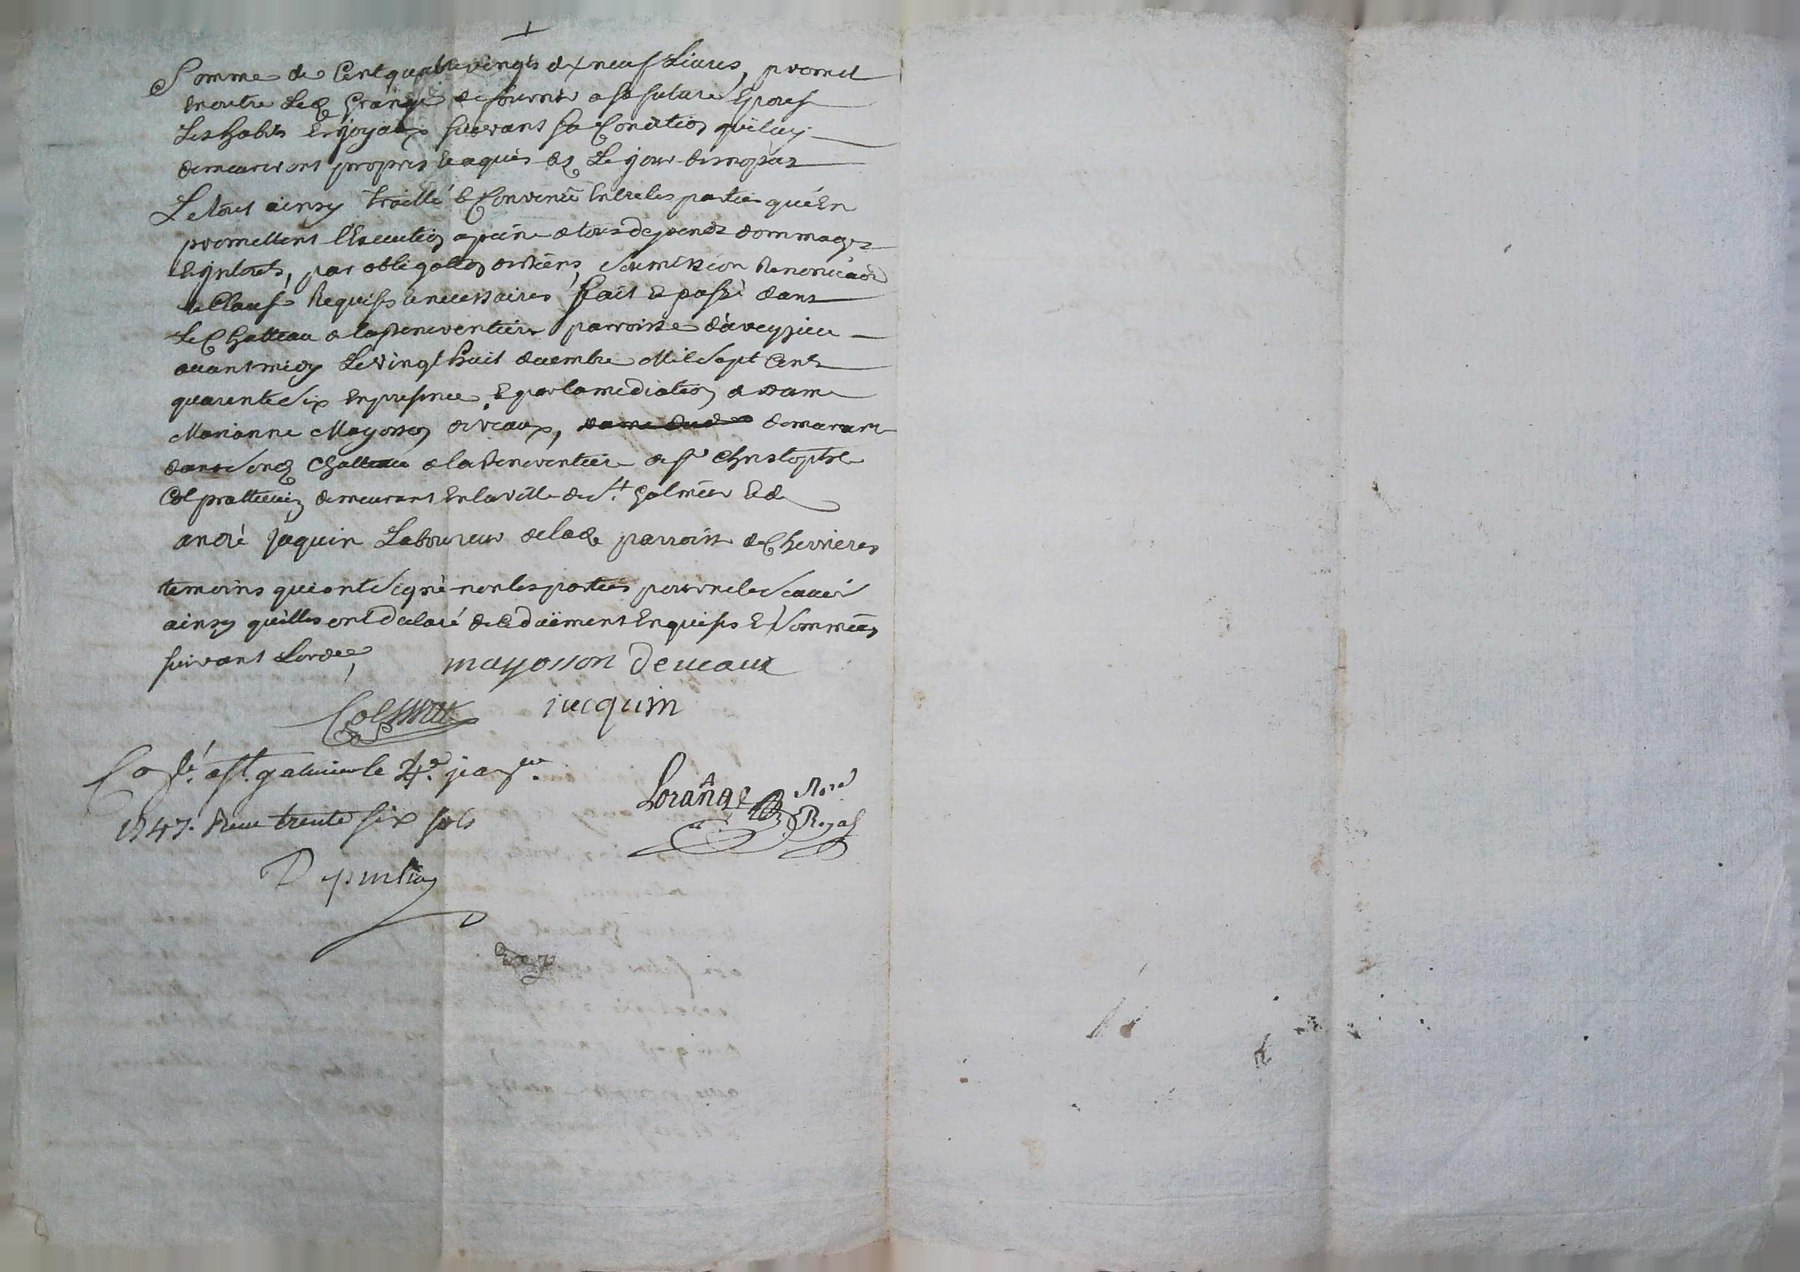 Somme de Cent quatre vingts dix neuf Livres, promet
en outre Led Grange de fournir a sa future Epouse
Les habits Et joyaux suivant sa Condition qui luy
demeureront propres & aquis dez Le jour des nopces
Le tout ainsy traitté & Convenu Entre les parties qui En
promettent l'Execution a peine de tous depends dommages
Et jnterets, par obligation de biens, soumission Renonciaōn
& Clauses Requises & necessaires fait & passé dans
Le Chatteau de la Beneventiere parroisse d'aveyzieu
avant midy Le vingt huit decembre Mil Sept Cent
quarente Six En presence, Et par la mediation de dame
Marianne Mayosson deveaux, demeurant
dans Sond Chatteau de la Beneventiere de sr Christophle
Col pratticien demeurant En la ville de St Galmier & de
andré jaquin Laboureur de lad parroisse de Chevrieres
temoins qui ont Signé non les parties pour ne le Scavoir
ainsy qu'elles ont declaré de ce duëment Enquises Et Sommées
suivant Lordce,
mayosson deveaux
jacquin
Con.lé a St. galmier le 4e janer.
1747. Reçu trente six sols
Lorange Nore Royal